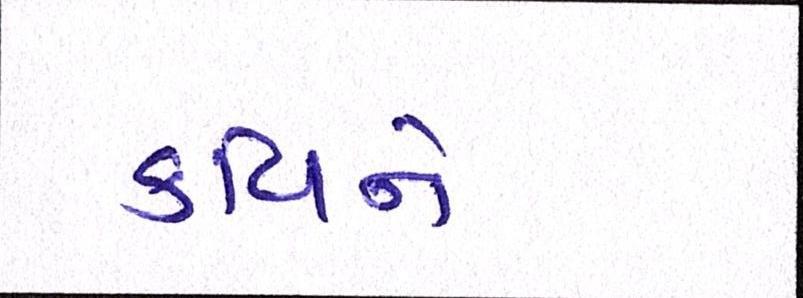 કવિને